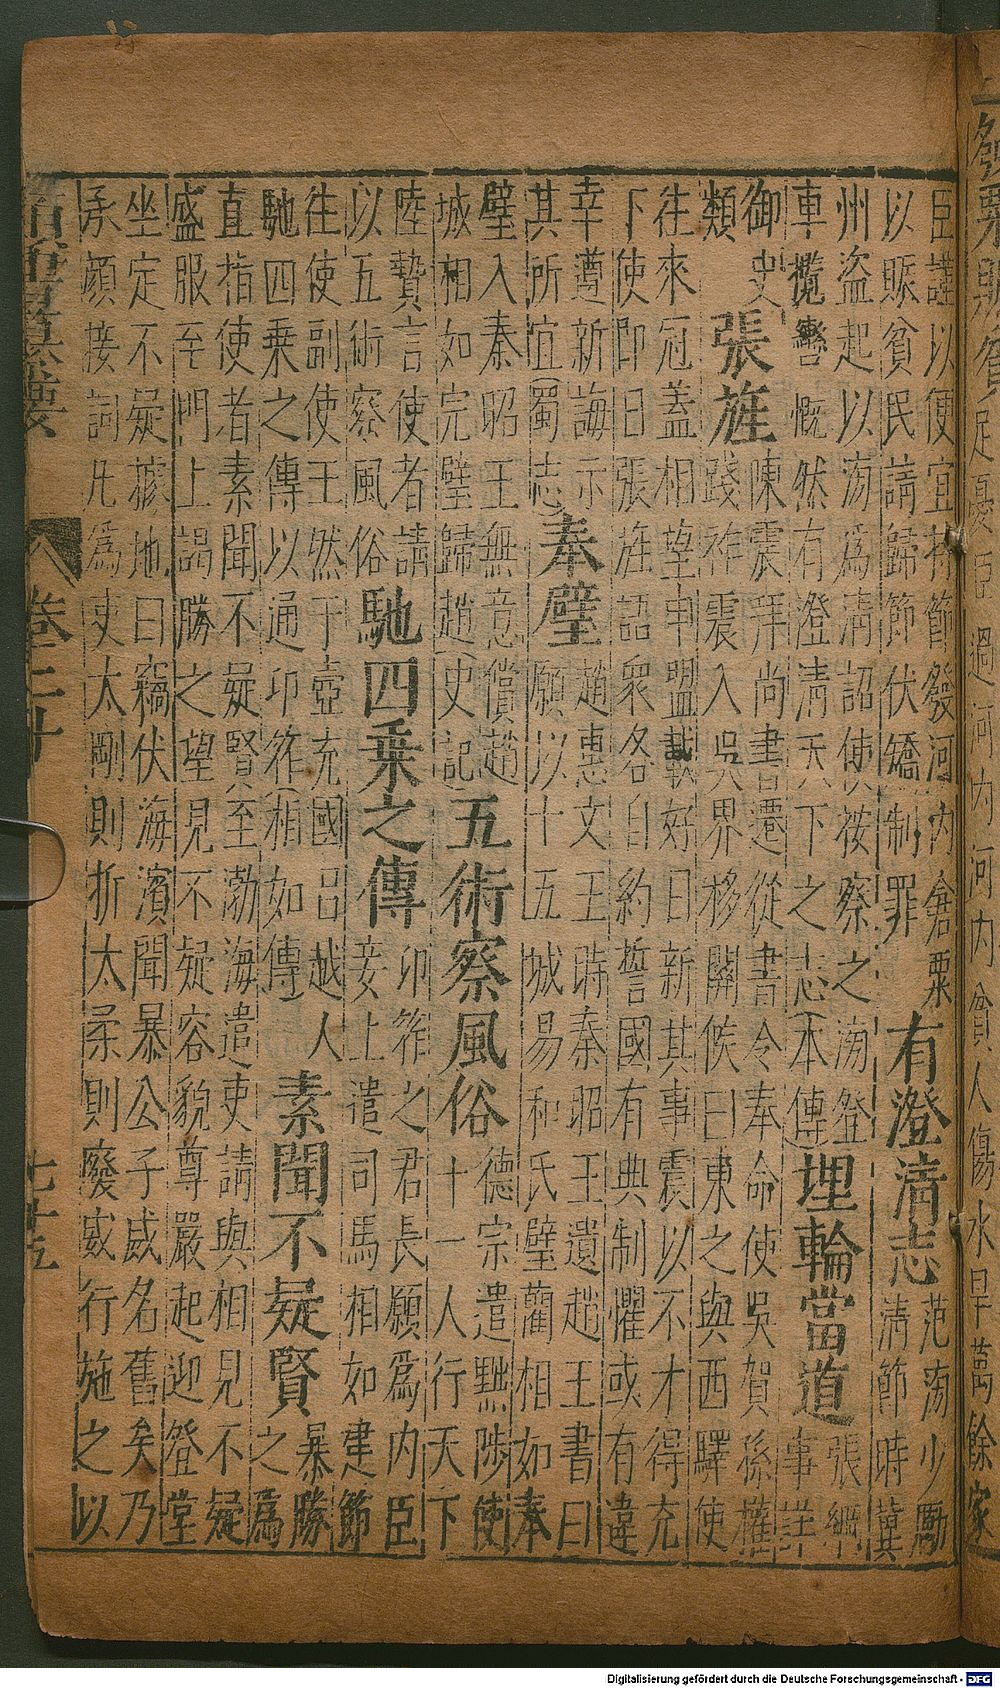 臣謹以便宜持節發河内倉粟
以賑貧民請歸節伏矯制罪
有澄淸志
范滂少勵
淸節時冀
州盜起以滂爲淸詔使按察之滂登
車攬轡慨然有澄淸天下之志(本傳
埋輪當道
張綱
事詳
御史
類
張旌
陳震拜尚書遷從書令奉命使吳賀孫權
踐祚震入吳界移關候曰東之與西驛使
往來冠蓋相望申盟載好日新其事震以不才得充
下使即日張旌語眾各自約誓國有典制懼或有違
幸遵新誨示
其所宜(蜀志
奉璧
趙惠文王時秦昭王遺趙王書曰
願以十五城易和氏璧藺相如奉
璧入秦昭王無意償趙
城相如完璧歸趙(史記
五術察風俗
德宗遣黜陟使
十一人行天下
陸贄言使者請
以五術察風俗
馳四乗之傳
卭筰之君長願爲内臣
妾上遣司馬相如建節
往使副使王然于壺充國吕越人
馳四乗之傳以通卭筰(相如傳
素聞不疑賢
暴勝
之爲
直指使者素聞不疑賢至渤海遣吏請與相見不疑
盛服至門上謁勝之望見不疑容貌尊嚴起迎登堂
坐定不疑據地曰竊伏海濱聞暴公子威名舊矣乃
承顏接詞凡爲吏太剛則折太柔則廢威行施之以
卷二十
七十五
Digitalisierung gefördert durch die Deutsche Forschungsgemeinschaft - DFG